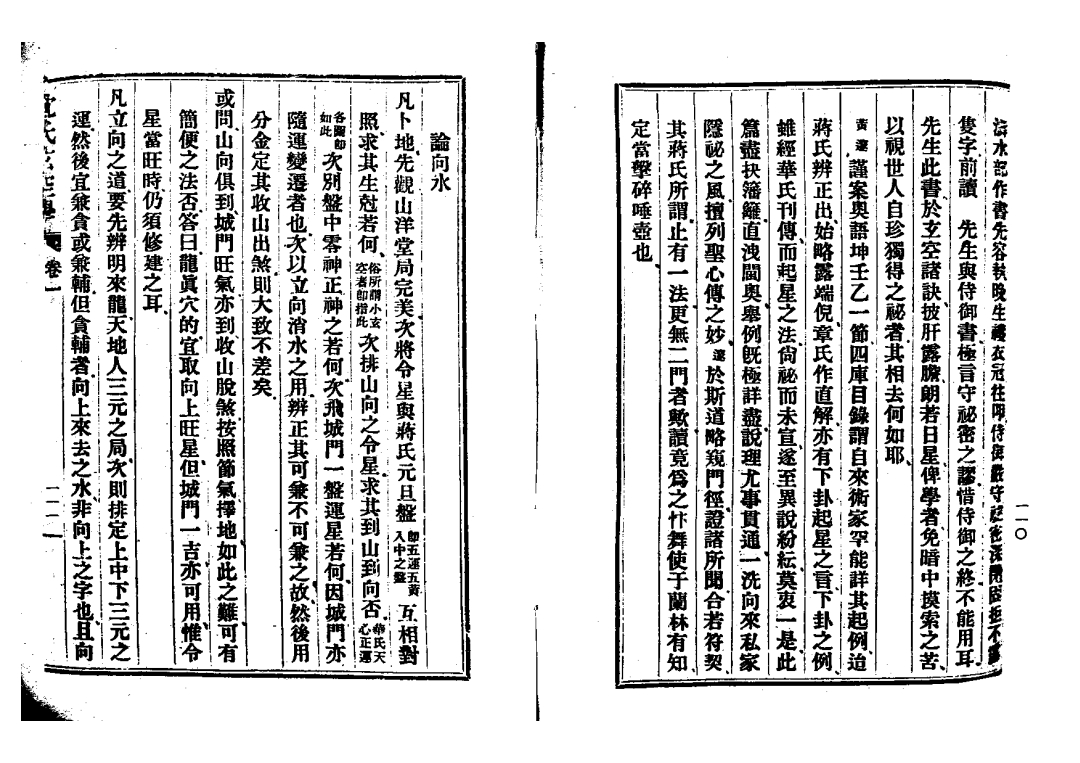 水記作書先容執晚生禮衣冠往
隻字前讀　先生與侍御書極言守祕密之謬惜侍御之終不能用耳
先生此書於玄空諸訣披肝露膽朗若日星俾學者免暗中摸索之苦
以視世人自珍獨得之祕者其相去何如耶
謹案奧語坤壬乙一節四庫目錄謂自來術家罕能詳其起例迨
蔣氏辨正出始略露端倪章氏作直解亦有下卦起星之言下卦之例
雖經華氏刊傳而起星之法尙祕而未宣遂至異說紛紜莫衷一是此
篇盡抉籓籬直洩閫奧舉例旣極詳盡說理尤事貫通一洗向來私家
隱祕之風擅列聖心傳之妙於斯道略窺門徑證諸所聞合若符契
其蔣氏所謂止有一法更無二門者歟讀竟爲之忭舞使于蘭林有知
定當擊碎唾壺也
一一〇
論向水
凡卜地先觀山洋堂局完美次將令星與蔣氏元旦盤卽五運五黃入中之盤互相對
照求其生尅若何俗所謂小玄空者卽指此次排山向之令星求其到山到向否華氏天心正運
各圖卽如此次別盤中零神正神之若何次飛城門一盤運星若何因城門亦
隨運變遷者也次以立向消水之用辨正其可兼不可兼之故然後用
分金定其收山出煞則大致不差矣
或問山向俱到城門旺氣亦到收山脫煞按照節氣擇地如此之難可有
簡便之法否答曰龍眞穴的宜取向上旺星但城門一吉亦可用惟令
星當旺時仍須修建之耳
凡立向之道要先辨明來龍天地人三元之局次則排定上中下三元之
運然後宜兼貪或兼輔但貪輔者向上來去之水非向上之字也且向
卷一
一一一